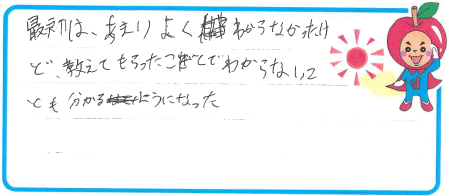 最初は、あまりよくわからなかったけ
ど、教えてもらったことでわからないこ
とも分かるようになった